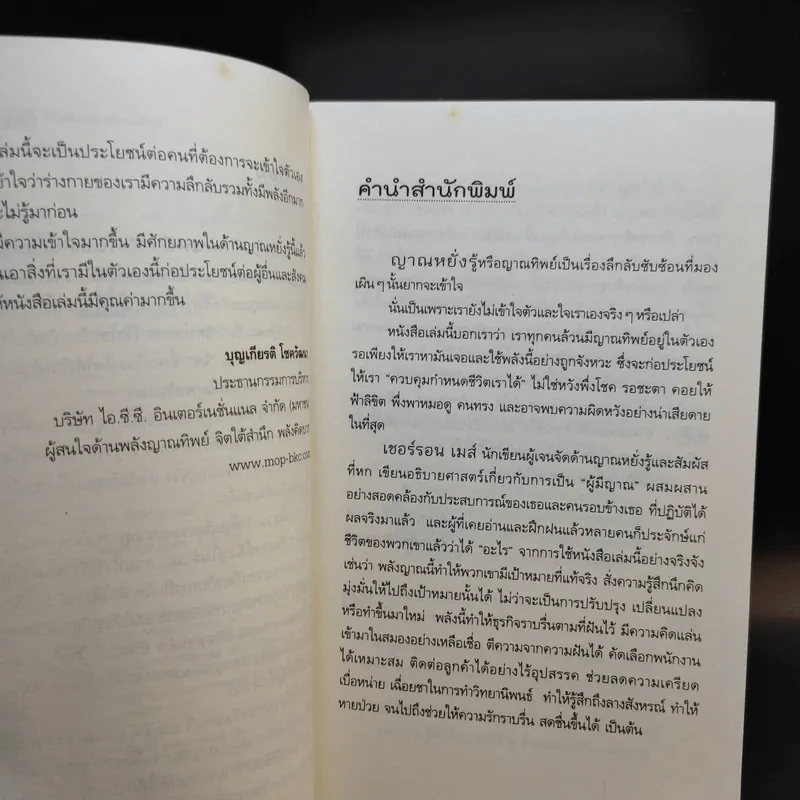 เล่มนี้จะเป็นประโยชน์ต่อคนที่ต้องการจะเข้าใจตัวเอง
ข้าใจว่าร่างกายของเรามีความลึกลับรวมทั้งมีพลังอีกมาก
ะไม่รู้มาก่อน
มีความเข้าใจมากขึ้น มีศักยภาพในด้านญาณหยั่งรู้นี้แล้ว
นเอาสิ่งที่เรามีในตัวเองนี้ก่อประโยชน์ต่อผู้อื่นและสังคม
ห้หนังสือเล่มนี้มีคุณค่ามากขึ้น
บุญเกียรติ โชควัฒนา
ประธานกรรมการบริหาร
บริษัท ไอ.ซี.ซี. อินเตอร์เนชั่นแนล จำกัด (มหาชน
ผู้สนใจด้านพลังญาณทิพย์ จิตใต้สำนึก พลังคิดบวก
www.mop-bkc.com
คำนำสำนักพิมพ์
ญาณหยั่งรู้หรือญาณทิพย์เป็นเรื่องลึกลับซับซ้อนที่มอง
เผินๆ นั้นยากจะเข้าใจ
นั่นเป็นเพราะเรายังไม่เข้าใจตัวและใจเราเองจริงๆ หรือเปล่า
หนังสือเล่มนี้บอกเราว่า เราทุกคนล้วนมีญาณทิพย์อยู่ในตัวเอง
รอเพียงให้เราหามันเจอและใช้พลังนี้อย่างถูกจังหวะ ซึ่งจะก่อประโยชน์
ให้เรา “ควบคุมกำหนดชีวิตเราได้” ไม่ใช่หวังพึ่งโชค รอชะตา คอยให้
ฟ้าลิขิต พึ่งพาหมอดู คนทรง และอาจพบความผิดหวังอย่างน่าเสียดาย
ในที่สุด
เชอร์รอน เมส์ นักเขียนผู้เจนจัดด้านญาณหยั่งรู้และสัมผัส
ที่หก เขียนอธิบายศาสตร์เกี่ยวกับการเป็น “ผู้มีญาณ” ผสมผสาน
อย่างสอดคล้องกับประสบการณ์ของเธอและคนรอบข้างเธอ ที่ปฏิบัติได้
ผลจริงมาแล้ว และผู้ที่เคยอ่านและฝึกฝนแล้วหลายคนก็ประจักษ์แก่
ชีวิตของพวกเขาแล้วว่าได้ “อะไร” จากการใช้หนังสือเล่มนี้อย่างจริงจัง
เช่นว่า พลังญาณนี้ทำให้พวกเขามีเป้าหมายที่แท้จริง สั่งความรู้สึกนึกคิด
มุ่งมั่นให้ไปถึงเป้าหมายนั้นได้ ไม่ว่าจะเป็นการปรับปรุง เปลี่ยนแปลง
หรือทำขึ้นมาใหม่ พลังนี้ทำให้ธุรกิจราบรื่นตามที่ฝันไว้ มีความคิดแล่น
เข้ามาในสมองอย่างเหลือเชื่อ ตีความจากความฝันได้ คัดเลือกพนักงาน
ได้เหมาะสม ติดต่อลูกค้าได้อย่างไร้อุปสรรค ช่วยลดความเครียด
เบื่อหน่าย เฉื่อยชาในการทำวิทยานิพนธ์ ทำให้รู้สึกถึงลางสังหรณ์ ทำให้
หายป่วย จนไปถึงช่วยให้ความรักราบรื่น สดชื่นขึ้นได้ เป็นต้น